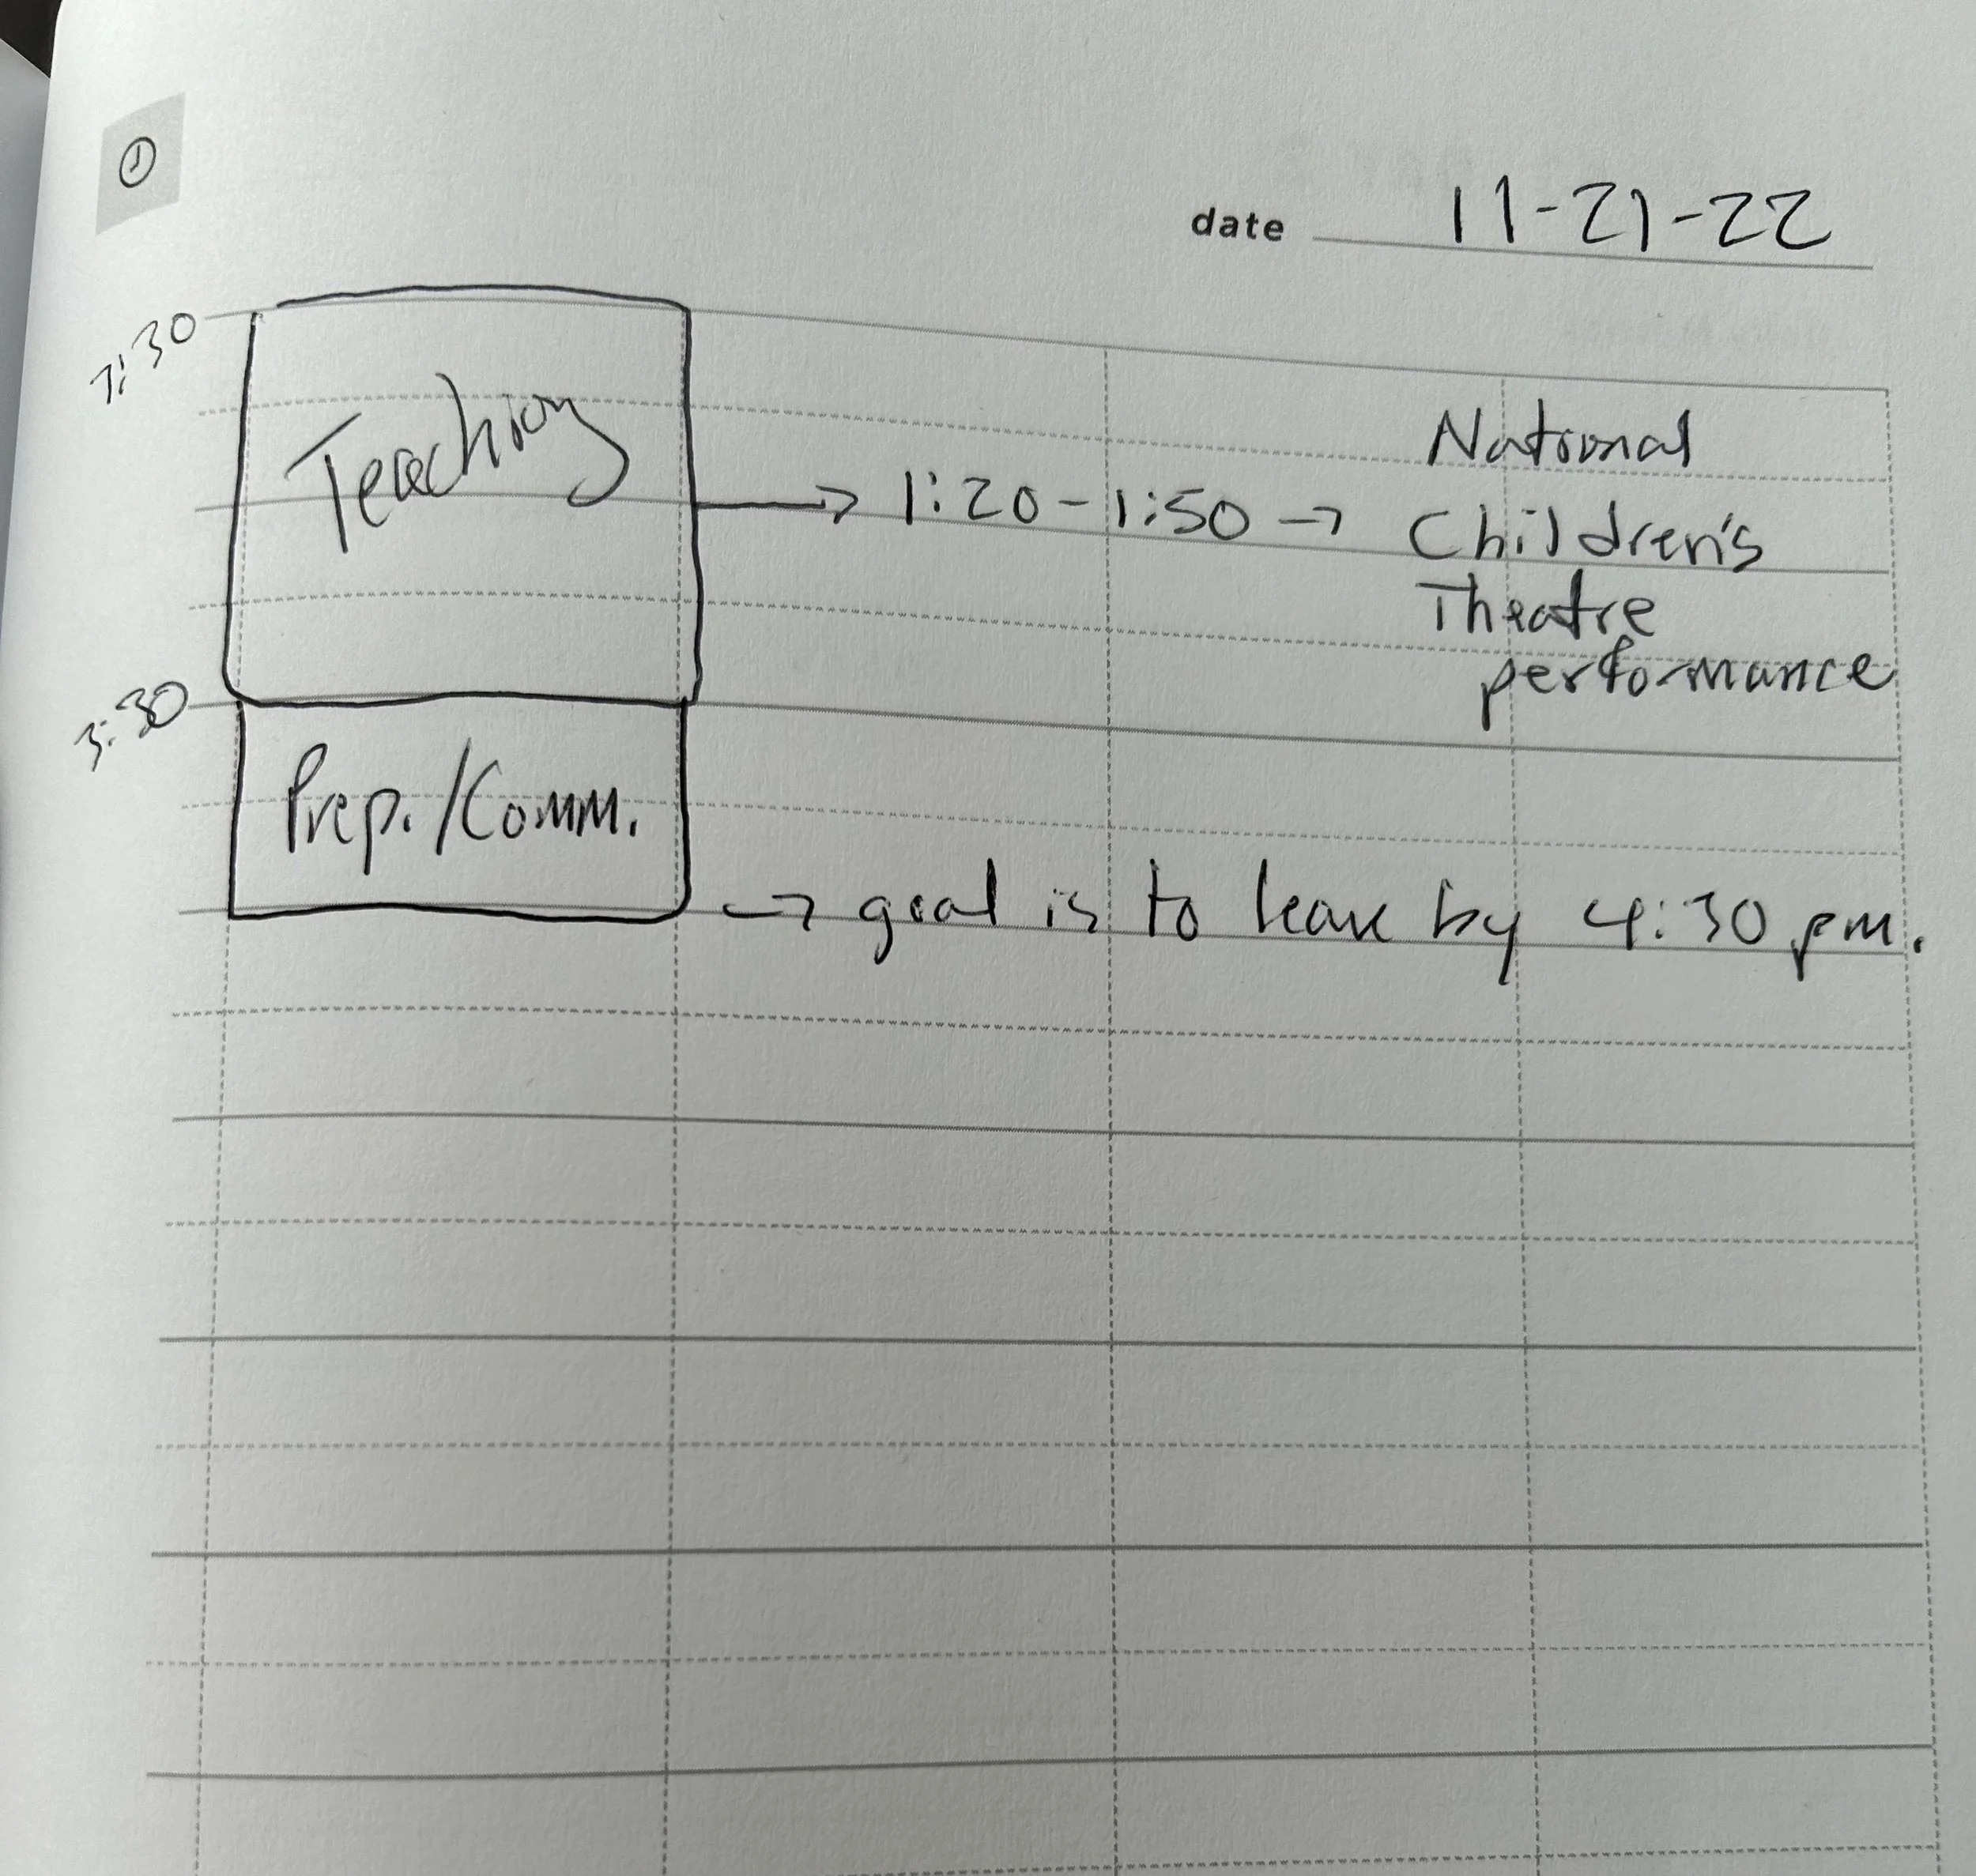 1
date 11-21-22
7:30
Teaching
→ 1:20-1:50 →
National
Children's
Theatre
performance
3:30
Prep./Comm.
→ goal is to leave by 4:30 pm.